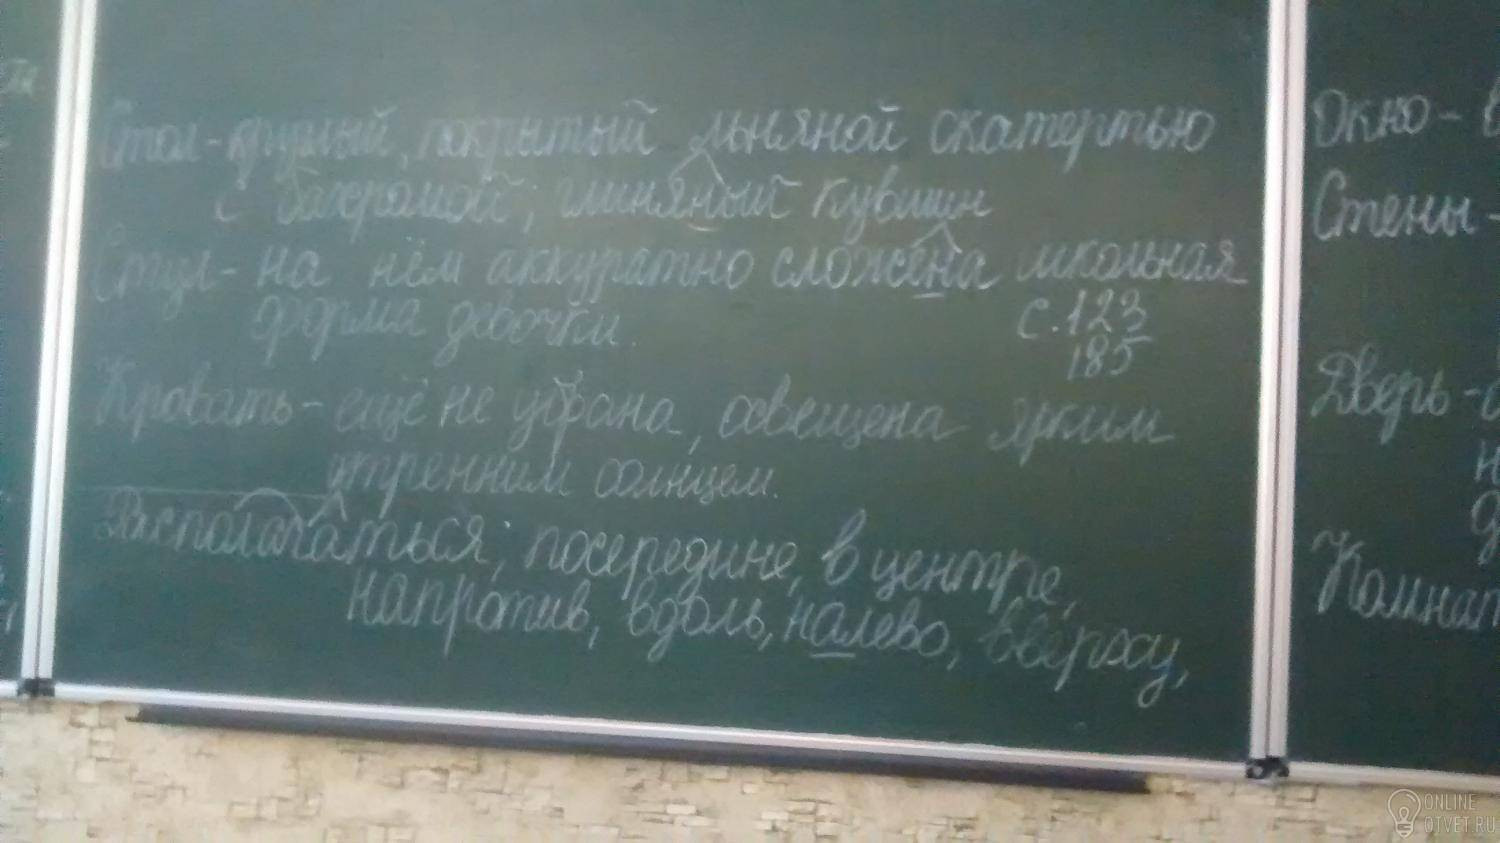 Стол - круглый, покрытый льняной скатертью
с бахромой; глиняный кувшин
Стул - на нём аккуратно сложена школьная
форма девочки.
с. 123
185
Кровать - ещё не убрана, освещена ярким
утренним солнцем.
Располагаться; посередине, в центре,
напротив, вдоль, налево, вверху,
Окно -
Стены -
Дверь -
ONLINE
OTVET.RU